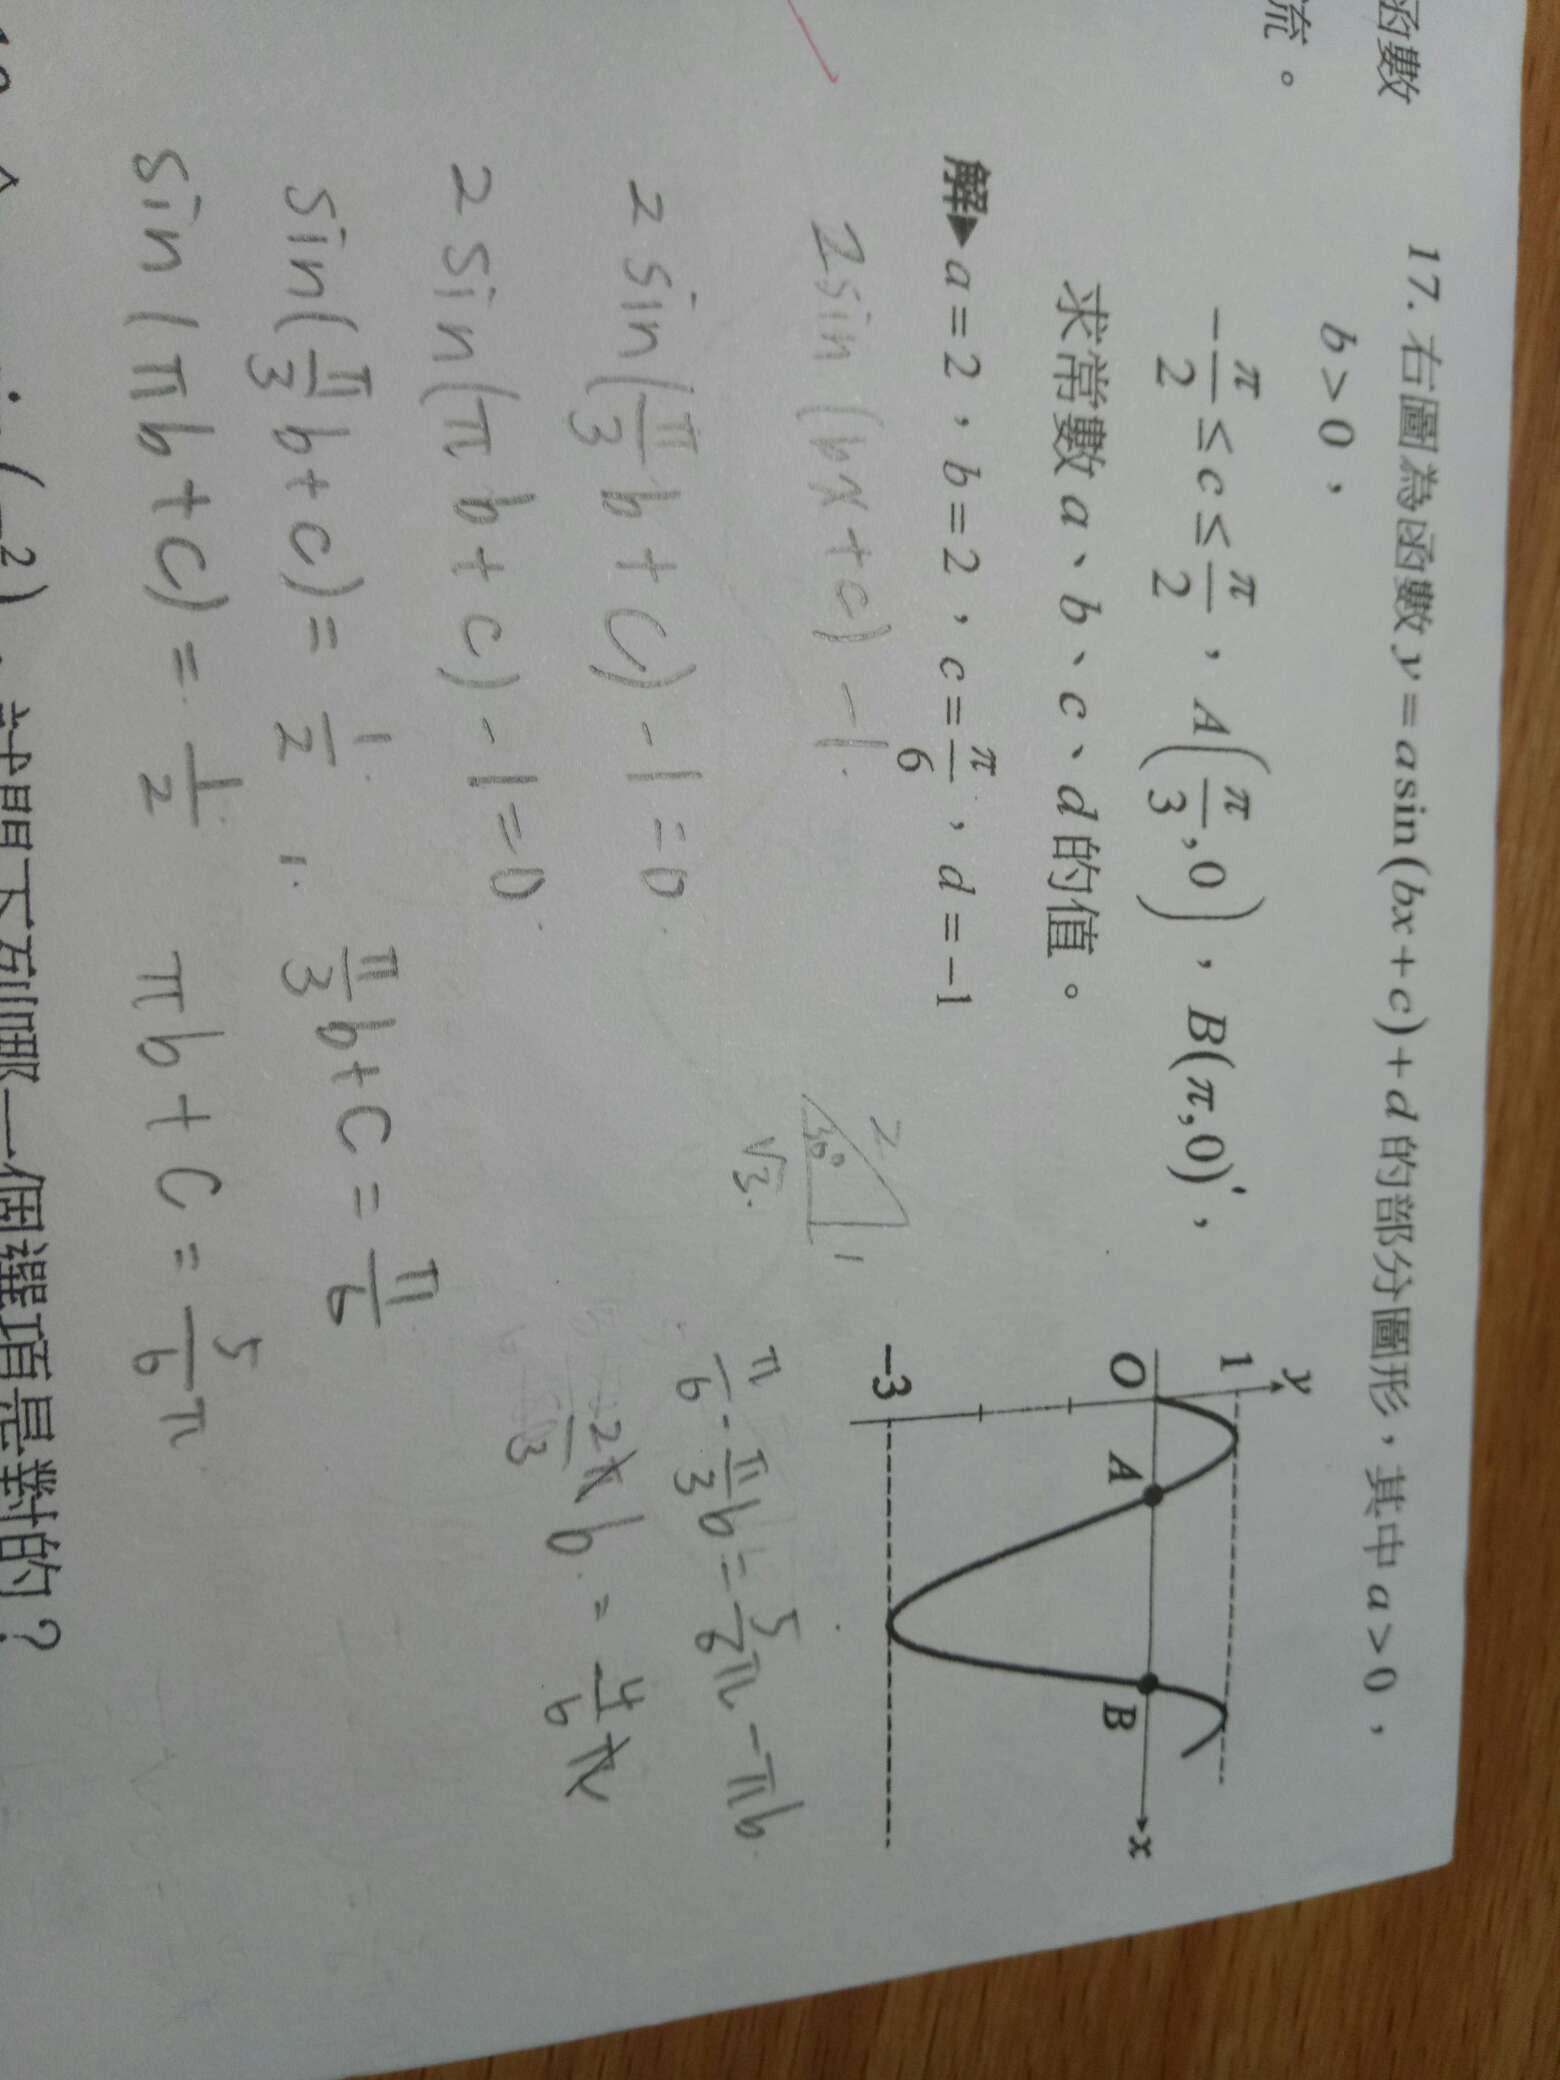 函數
流。
17. 右圖為函數 y = a sin(bx + c) + d 的部分圖形，其中 a > 0，
b > 0，
-π/2 ≤ c ≤ π/2，A(π/3, 0)，B(π, 0)'，
求常數 a、b、c、d 的值。
解▶ a = 2，b = 2，c = π/6，d = -1
y
1
O
A
B
x
-3
2 sin (bx + c) - 1
2
30°
1
√3
2 sin(π/3 b + c) - 1 = 0
2 sin(π b + c) - 1 = 0
sin(π/3 b + c) = 1/2
π/3 b + c = π/6
sin(πb + c) = 1/2
πb + c = 5/6 π
π/6 - π/3 b = 5/6 π - πb
2π/3 b = 4/6 π
試問下列哪一個選項是對的？